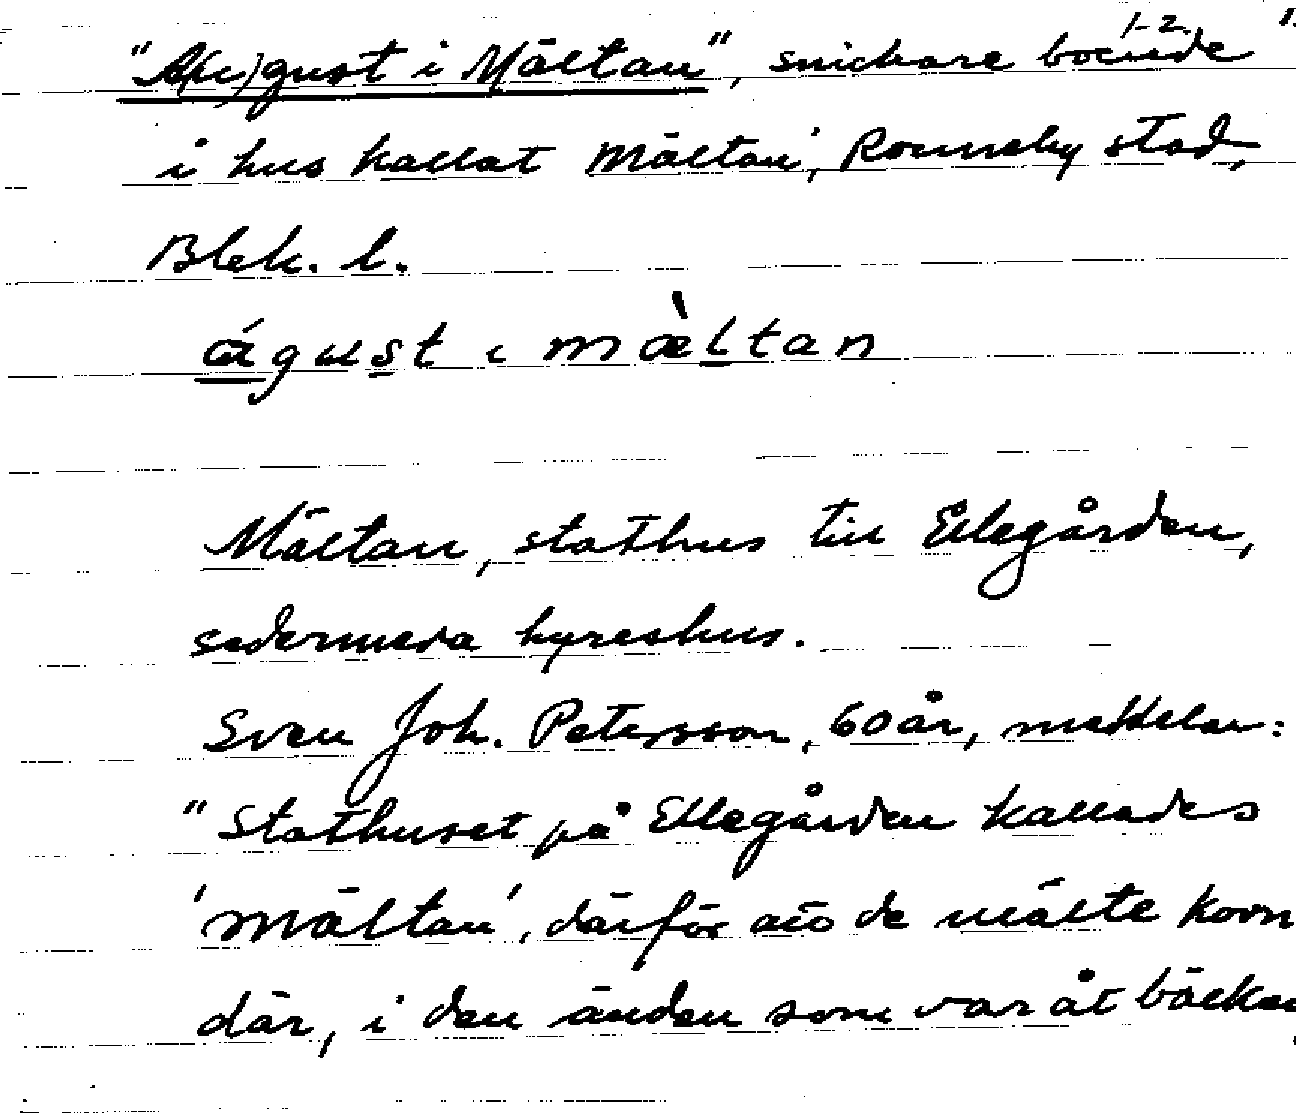 1-2.
"A(u)gust i Mältan", snickare boende
i hus kallat 'Mältan', Ronneby stad,
Blek. l.
águst i mæ̀ltan
Mältan, stathus till Ellegården,
sedermera hyreshus.
Sven Joh. Petersson, 60 år, meddelar:
"Stathuset på Ellegården kallades
'Mältan', därför att de mälte korn
där, i den änden som var åt bäcken